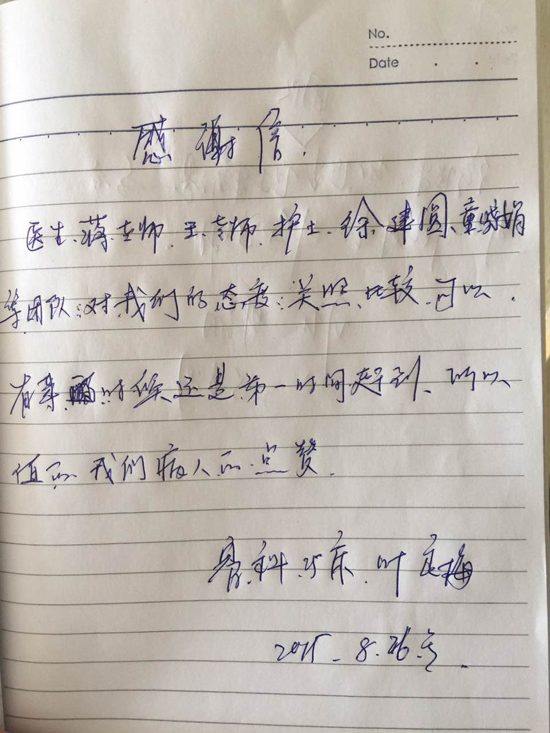 No.
Date . .
感谢信.
医生.蒋老师.王老师.护士.徐建圆、童
娟
等团队:对我们的态度:关照.比较.可以.
有事 时候还是第一时间赶到、所以
值的我们病人的点赞.
骨.科. 床.叶 梅
2015.8.26号.